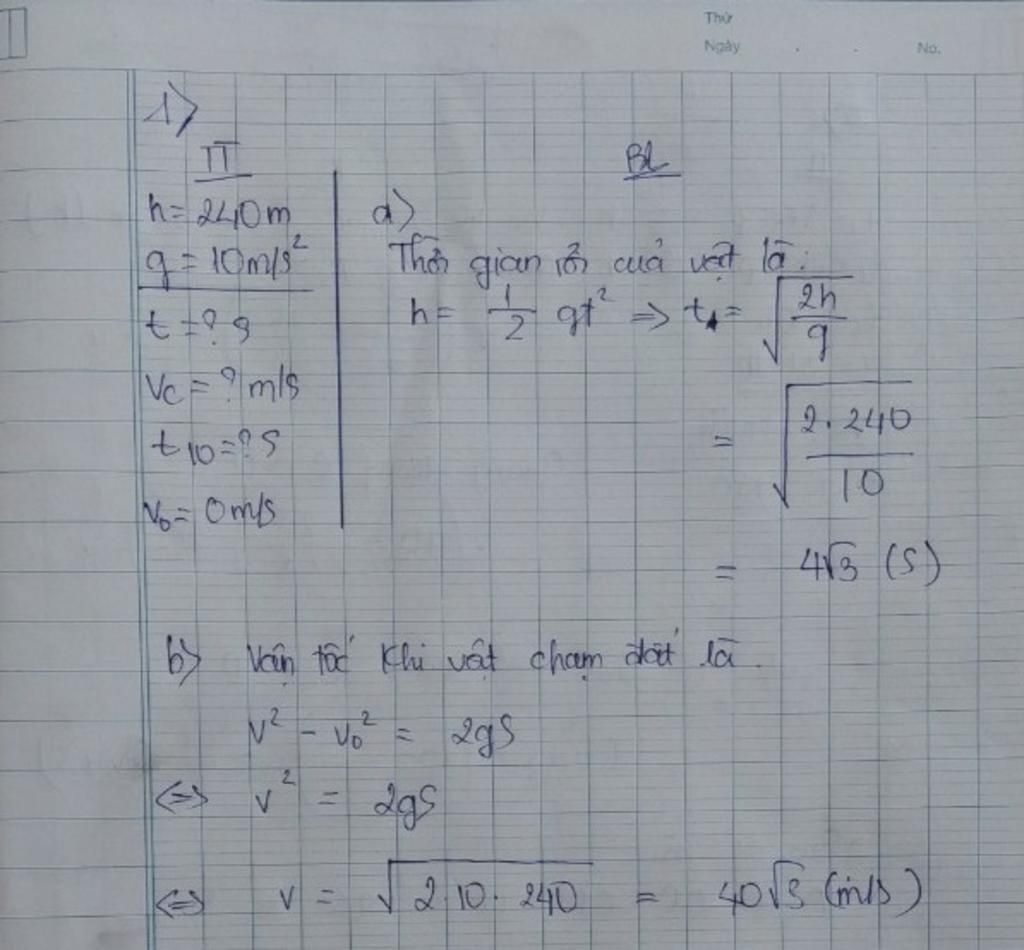 Thứ
Ngày . . No.
1)
TT
h = 240m
g = 10m/s²
t = ? s
Vc = ? m/s
t10 = ? s
V₀ = 0m/s
BL
a)
Thời gian rơi của vật là:
h = 1/2 gt² => t₁ = √(2h/g)
= √(2.240/10)
= 4√3 (s)
b) Vận tốc khi vật chạm đất là.
V² - V₀² = 2gS
<=> V² = 2gS
<=> V = √(2.10.240) = 40√3 (m/s)